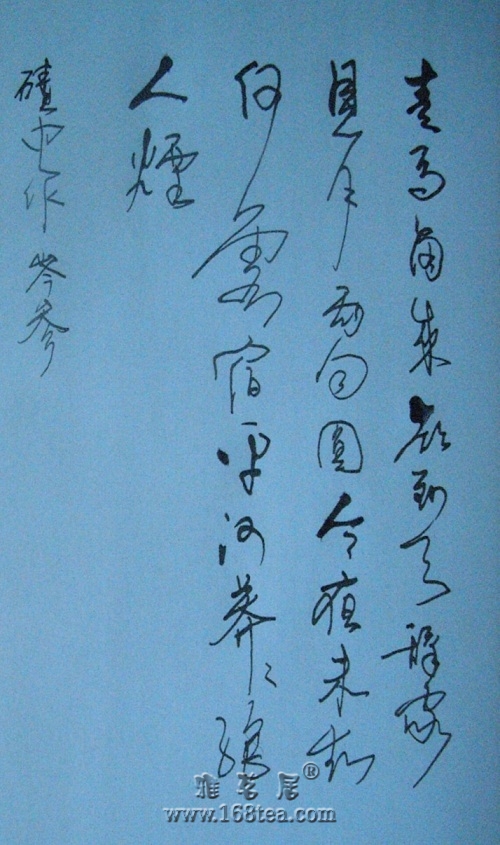 走马西来欲到天辞家
見月两回圓今夜未知
何處宿平沙莽々絕
人煙
磧中作 岑参
雅茗居®
www.168tea.com